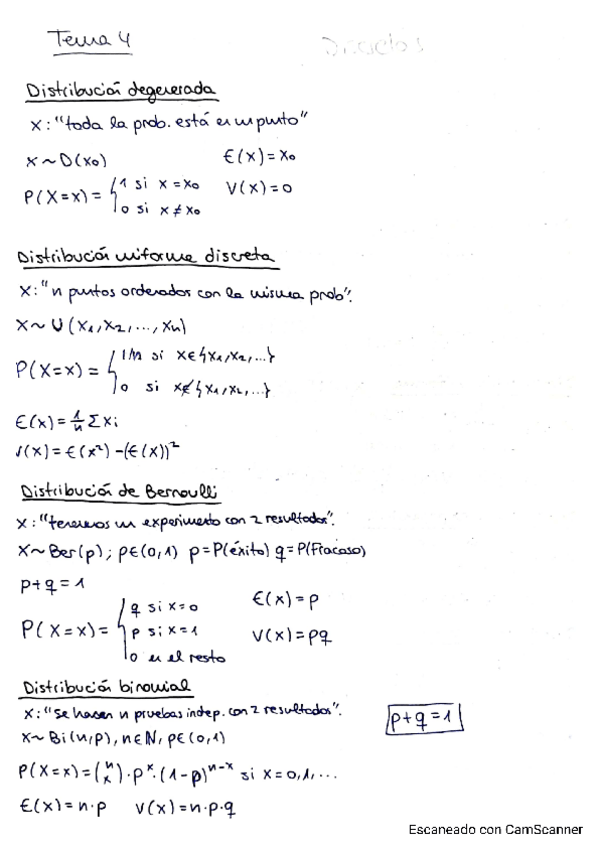 Tema 4
Discretas
Distribución degenerada
X: "toda la prob. está en un punto"
X ~ D(x₀)    E(x) = x₀
P(X=x) = { 1 si x = x₀    V(x) = 0
0 si x ≠ x₀
Distribución uniforme discreta
X: "n puntos ordenados con la misma prob".
X ~ U(x₁, x₂, ..., xₙ)
P(X=x) = { 1/n si x ∈ {x₁, x₂, ...}
0 si x ∉ {x₁, x₂, ...}
E(x) = 1/n Σ xi
V(x) = E(x²) - (E(x))²
Distribución de Bernoulli
X: "tenemos un experimento con 2 resultados".
X ~ Ber(p); p ∈ (0,1) p = P(éxito) q = P(Fracaso)
p + q = 1
P(X=x) = { q si x = 0    E(x) = p
p si x = 1    V(x) = pq
0 en el resto
Distribución binomial
X: "se hacen n pruebas indep. con 2 resultados".    p + q = 1
X ~ Bi(n,p), n ∈ N, p ∈ (0,1)
P(X=x) = (n x) · pˣ · (1-p)ⁿ⁻ˣ si x = 0, 1, ...
E(x) = n · p    V(x) = n · p · q
Escaneado con CamScanner